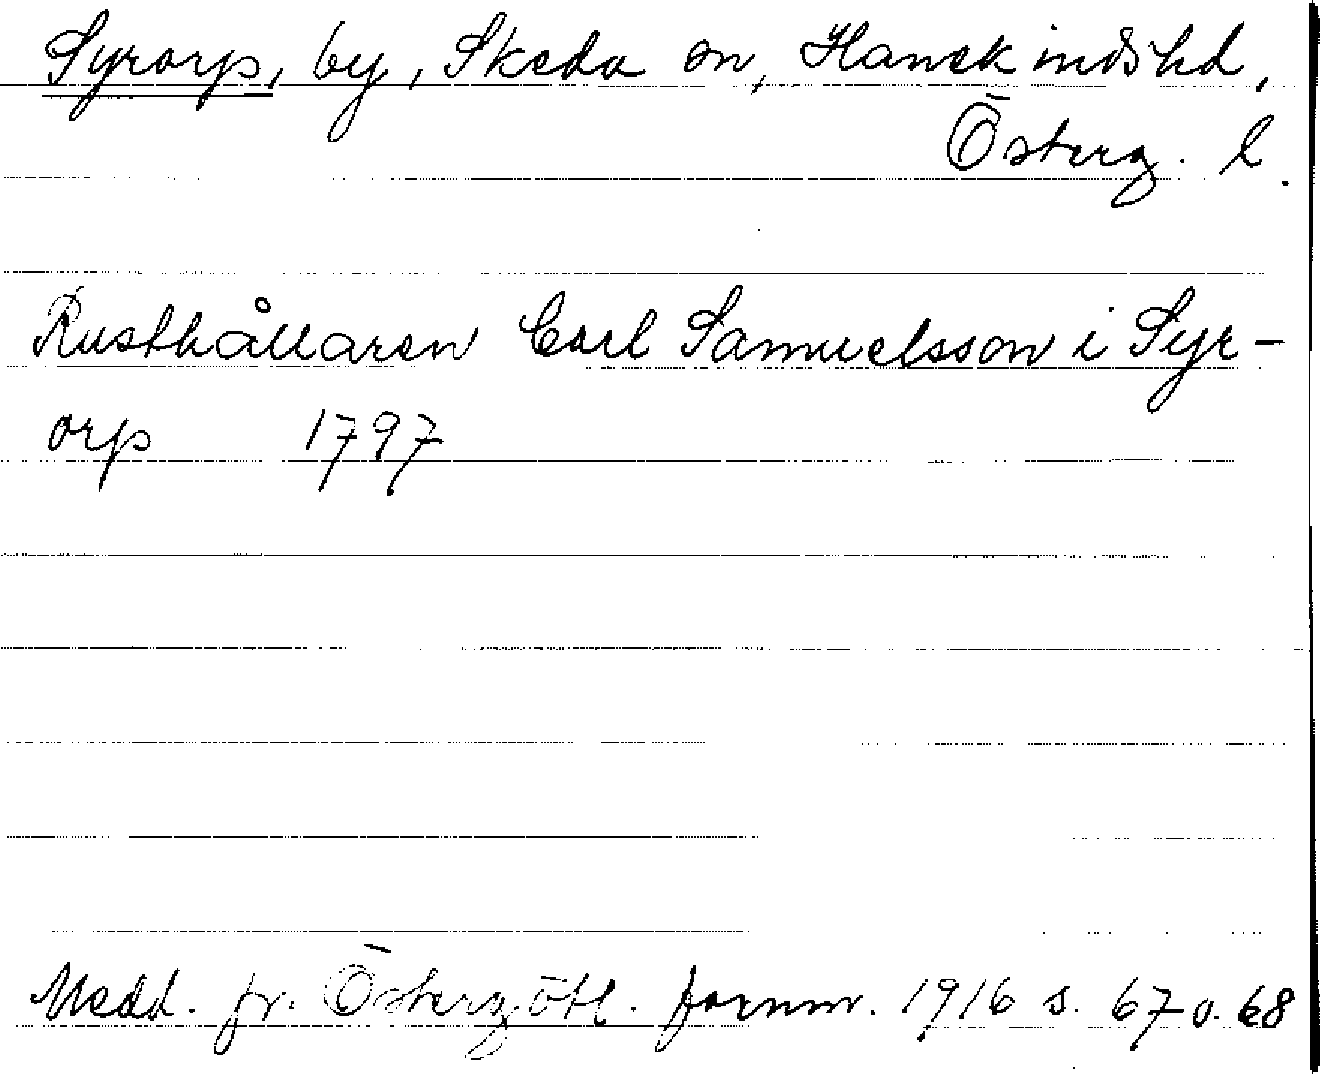 Syrorp, by, Skeda sn, Hanekinds hd,
Österg. l.
Rusthållaren Carl Samuelsson i Syr-
orp 1797
Medd. fr. Östergötl. fornm. 1916 s. 67 o. 68